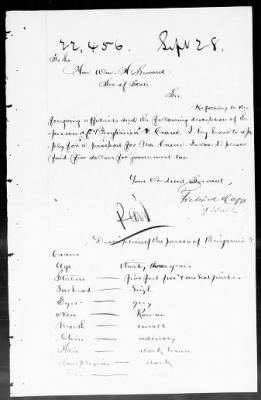 22,456. Sept 28.
To the
Hon. Wm. H. Seward
Sec of State
Sir:
Referring to the
foregoing affidavits and the following description of the
person of Benjamin F. Crane, I beg leave to ap-
ply for a passport for Mr. Crane. Enclosed please
find five dollars for government tax
Your Obedient Servant,
Paid
Description of the person of Benjamin F.
Crane
Age — thirty three years
Stature — five feet five and half inches
Forehead — high
Eyes — grey
Nose — Roman
Mouth — small
Chin — ordinary
Hair — dark brown
Complexion — dark